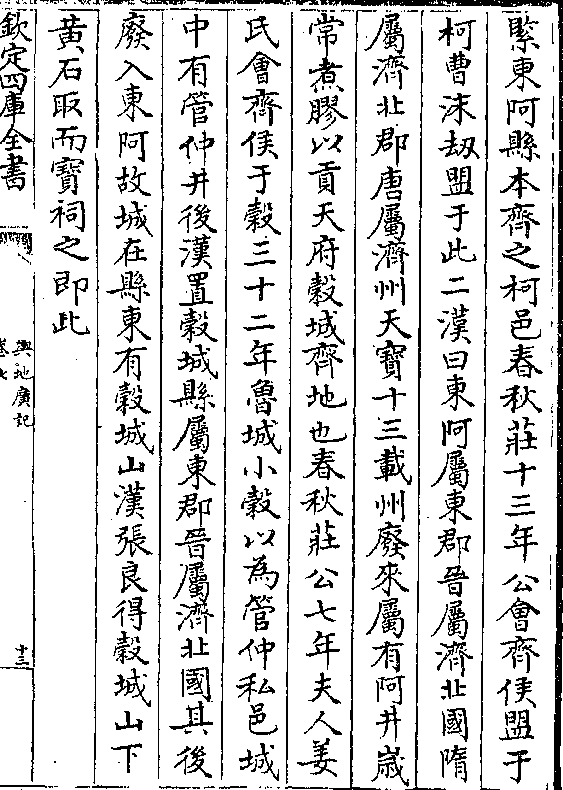 緊東阿縣本齊之柯邑春秋莊十三年公會齊侯盟于
柯曹沬刼盟于此二漢曰東阿屬東郡晉屬濟北國隋
屬濟北郡唐屬濟州天寶十三載州廢來屬有阿井嵗
常煮膠以貢天府榖城齊地也春秋莊公七年夫人姜
氏會齊侯于榖三十二年魯城小榖以為管仲私邑城
中有管仲井後漢置榖城縣屬東郡晉屬濟北國其後
廢入東阿故城在縣東有榖城山漢張良得榖城山下
黃石取而寶祠之即此
欽定四庫全書
輿地廣記
卷七
十三